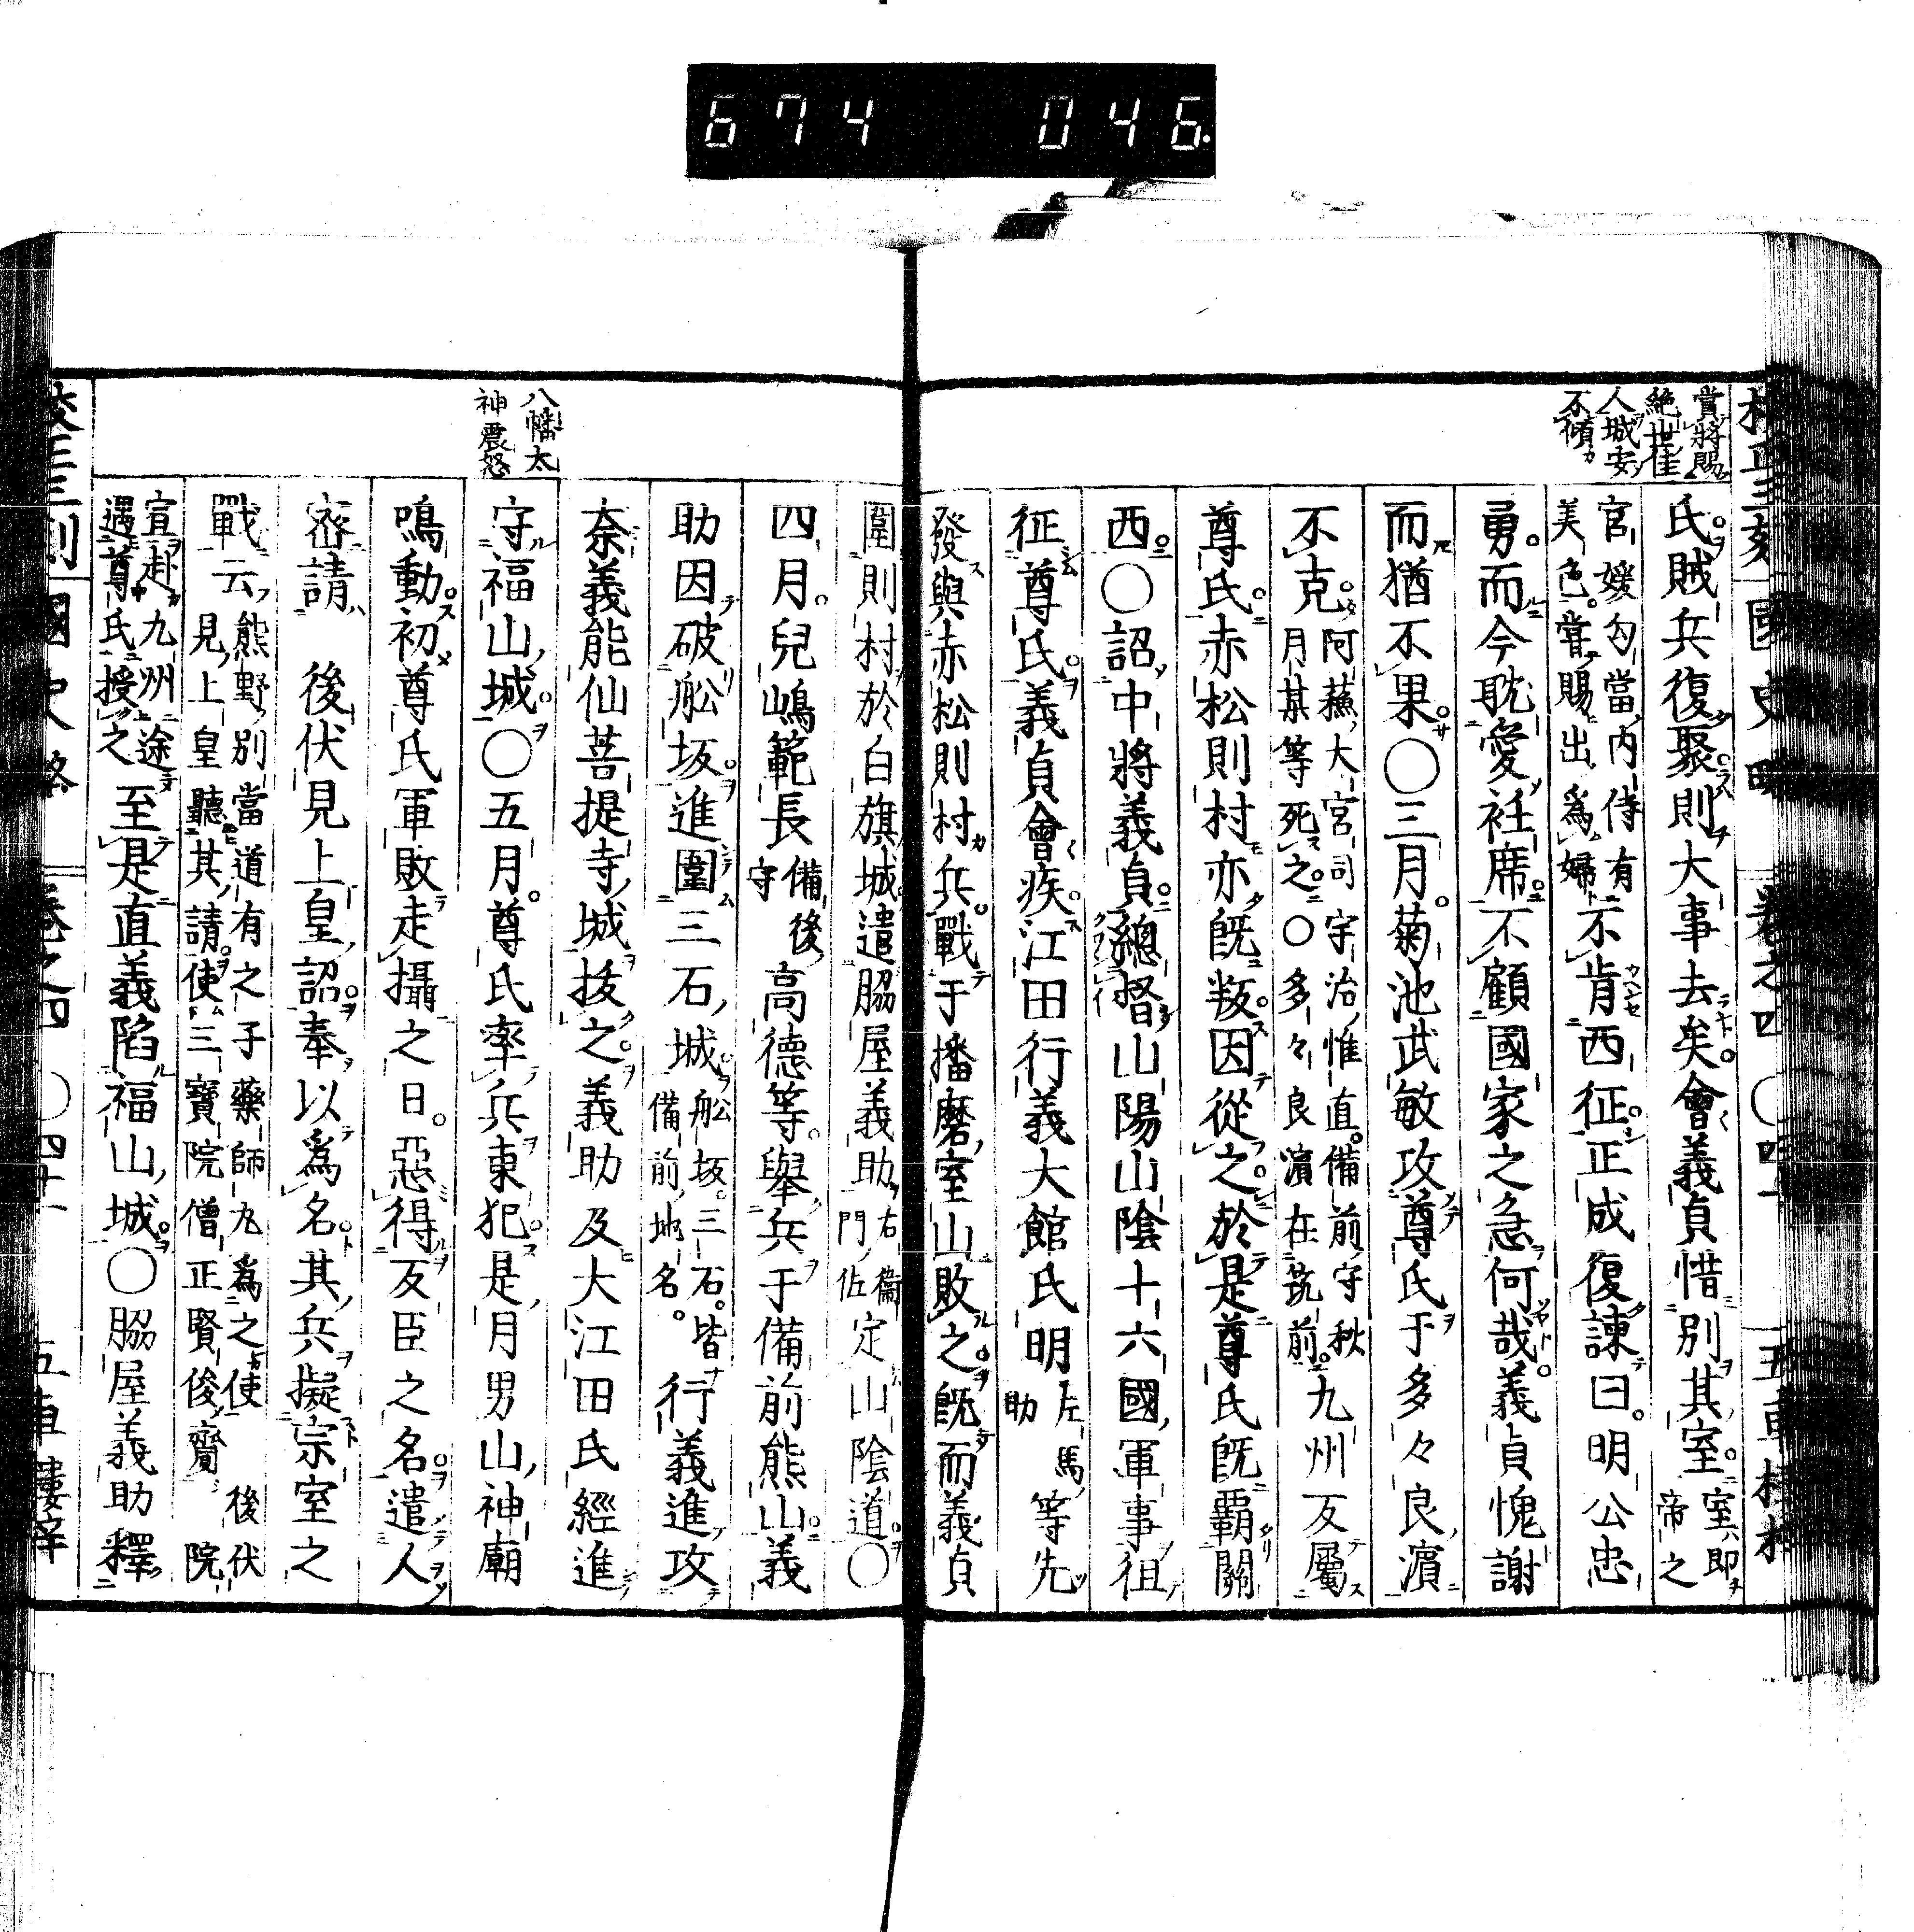 674 046.
賞將賜
絶世佳
人城安
不傾
氏賊兵復聚則大事去矣會義貞惜別其室室即帝之
宮嬡勾當内侍有美色嘗賜出爲婦不肯西征正成復諫曰明公忠
勇而今耽愛袵席不顧國家之急何哉義貞愧謝
而猶不果〇三月菊池武敏攻尊氏于多々良濵
不克阿蘓大宮司宇治惟直備前守秋月某等死之〇多々良濵在筑前九州反屬
尊氏赤松則村亦旣叛因從之於是尊氏旣覇關
西〇詔中將義貞總督山陽山陰十六國軍事徂
征尊氏義貞會疾江田行義大館氏明左馬助等先
發與赤松則村兵戰于播磨室山敗之旣而義貞
八幡太
神震怒
圍則村於白旗城遣脇屋義助右衞門佐定山陰道〇
四月兒嶋範長備後守高德等舉兵于備前熊山義
助因破舩坂進圍三石城舩坂三石皆備前地名行義進攻
奈義能仙菩提寺城拔之義助及大江田氏經進
守福山城〇五月尊氏率兵東犯是月男山神廟
鳴動初尊氏軍敗走攝之日惡得反臣之名遣人
密請　後伏見上皇詔奉以爲名其兵擬宗室之
戰云熊野別當道有之子藥師丸爲之使　後伏見上皇聽其請使三寶院僧正賢俊齎　院
宣赴九州途遇尊氏授之至是直義陷福山城〇脇屋義助釋
國史略
卷之四
〇四十一